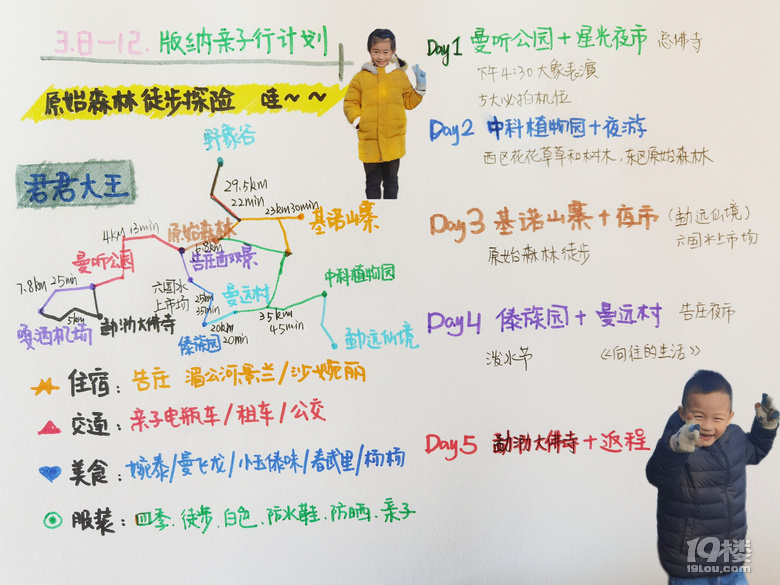 3.8—12. 版纳亲子行计划
原始森林徒步探险 哇~~
君君大王
野象谷
29.5km
22min
23km30min
基诺山寨
4KM 13min
原始森林
6.8km
曼听公园
告庄西双景
7.8km 25min
六国水
上市场
25km
35min
曼远村
中科植物园
5km
嘎洒机场
勐泐大佛寺
傣族园
20km
20min
35km
45min
勐远仙境
住宿：告庄 湄公河景兰/沙婉丽
交通：亲子电瓶车/租车/公交
美食：婉泰/曼飞龙/小玉傣味/春武里/杨杨
服装：四季.徒步.白色.防水鞋.防晒.亲子
Day1 曼听公园+星光夜市 总佛寺
下午4:30大象表演
5大必拍机位
Day2 中科植物园+夜游
西区花花草草和树木，东区原始森林
Day3 基诺山寨+夜市 (勐远仙境)
原始森林徒步
六国水上市场
Day4 傣族园+曼远村 告庄夜市
泼水节 《向往的生活》
Day5 勐泐大佛寺+返程
19楼
19lou.com